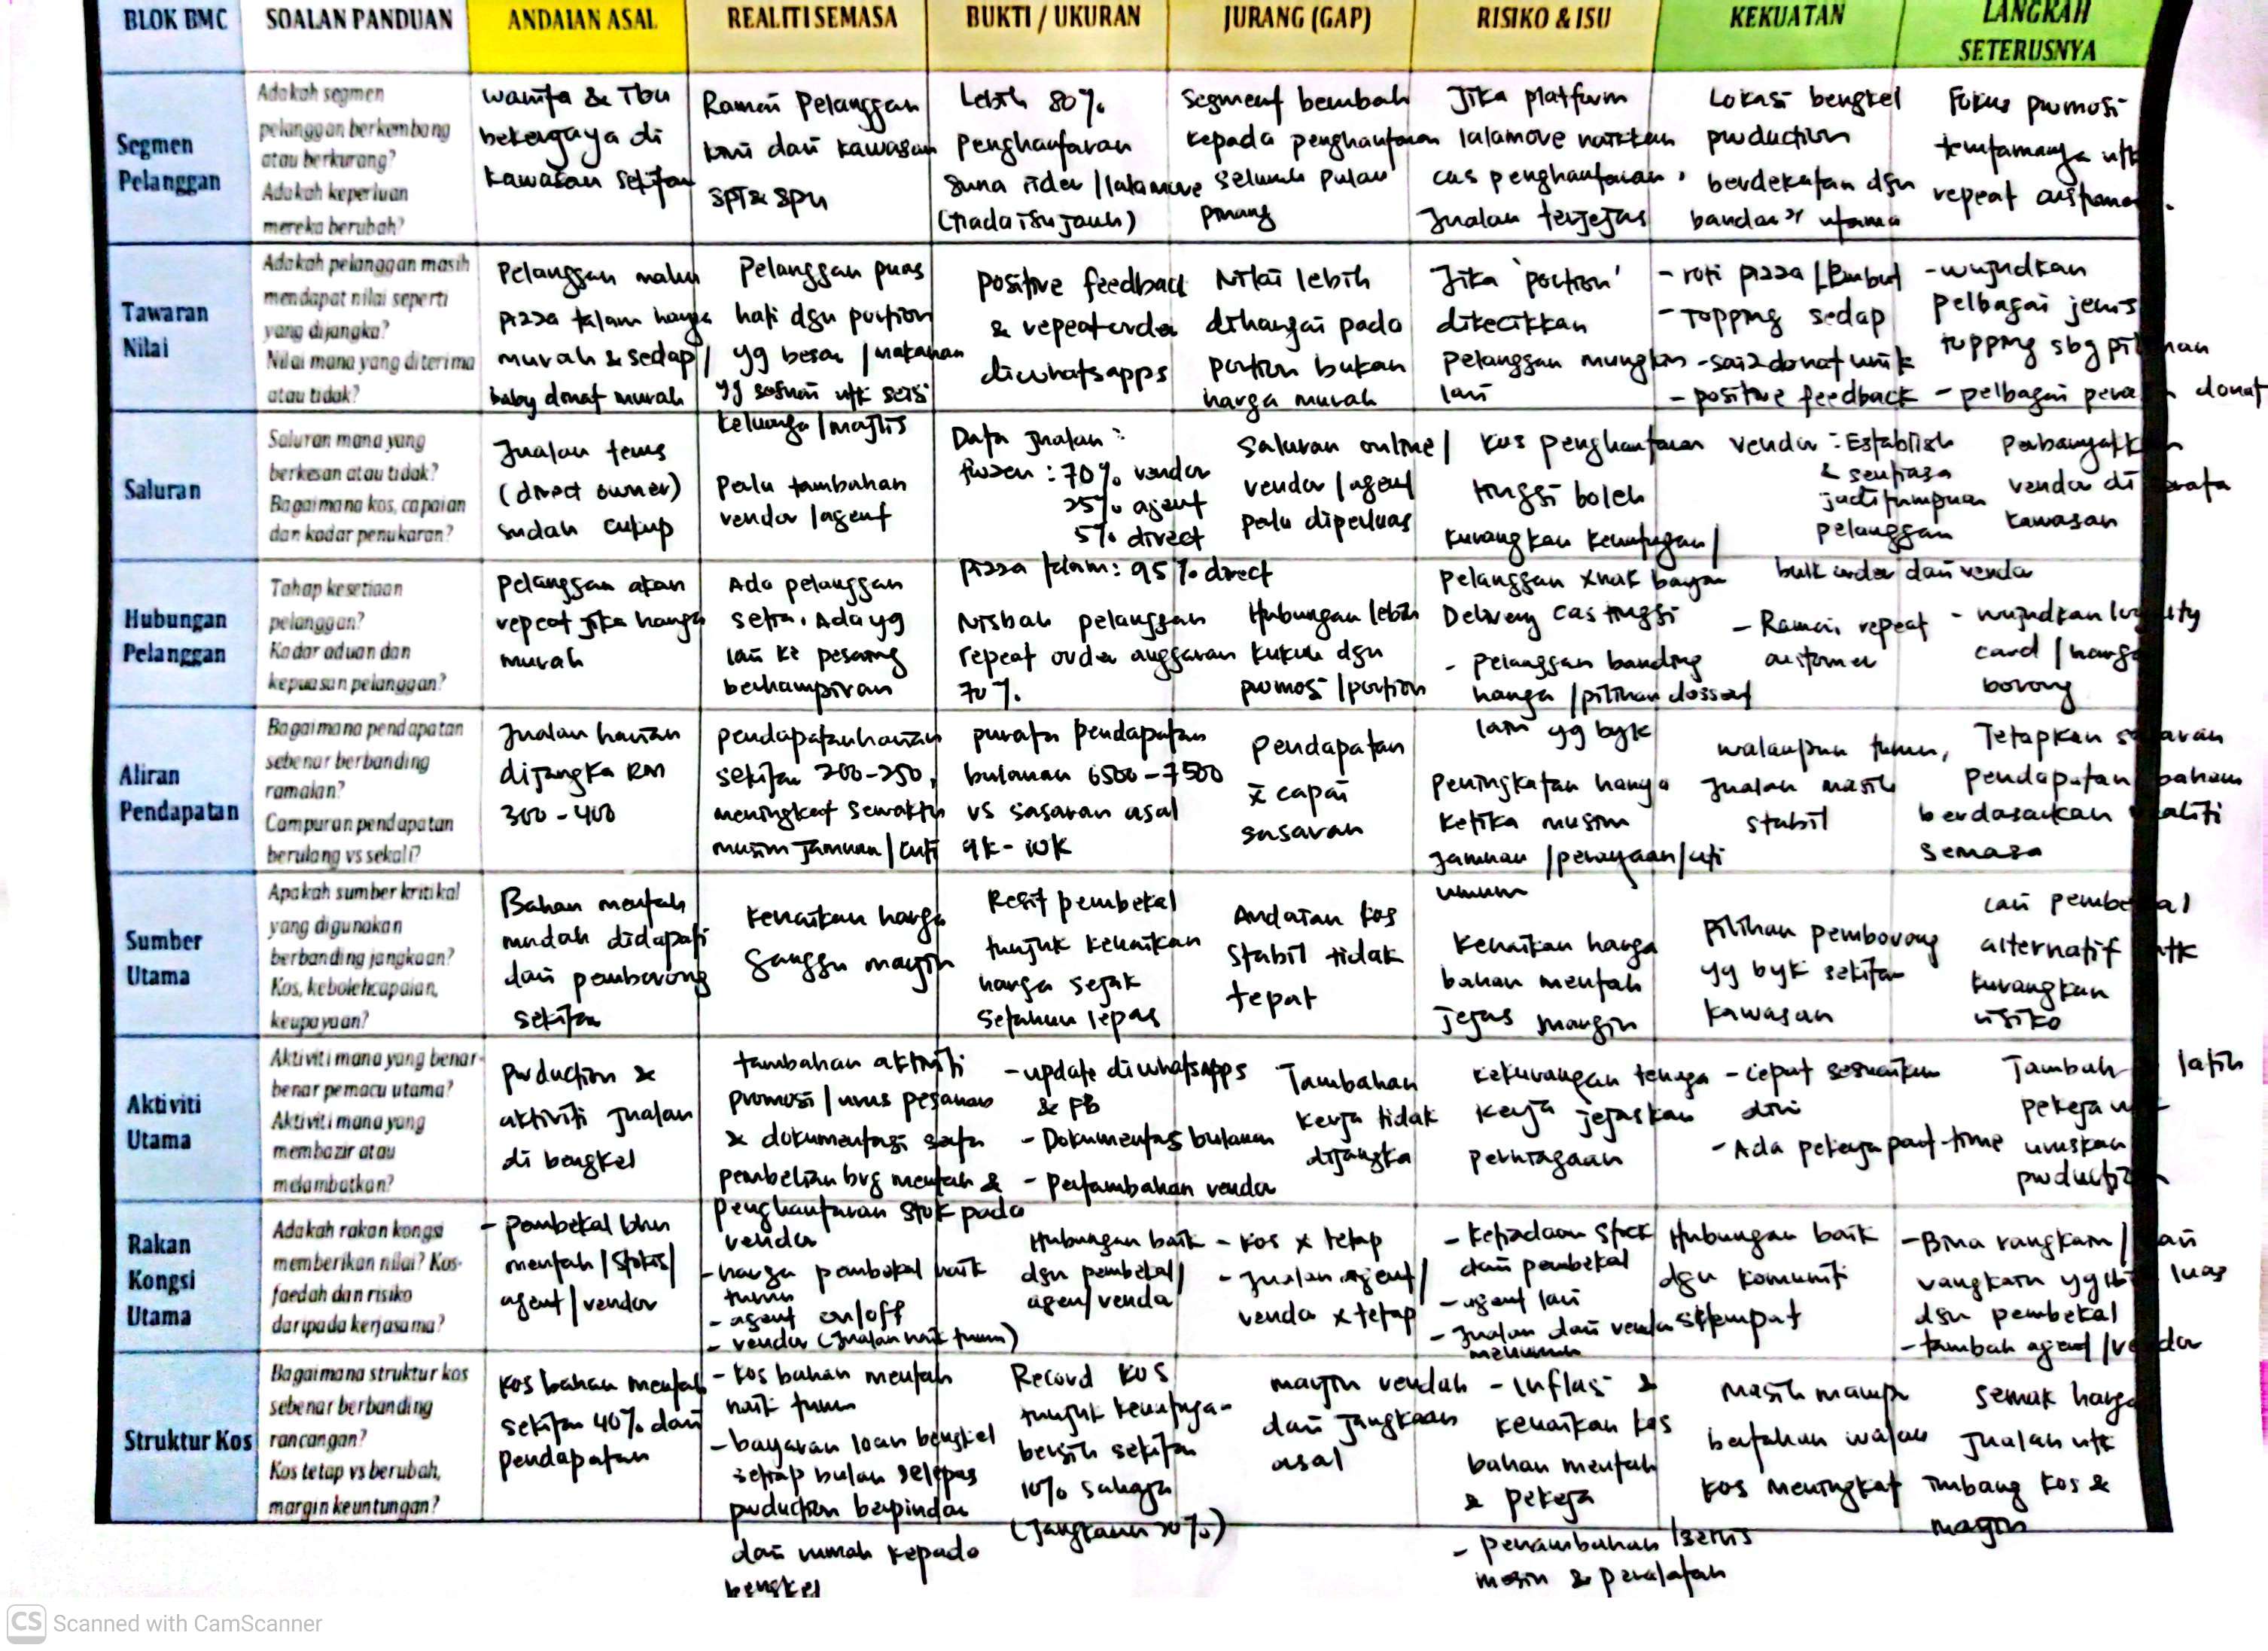 BLOK BMC
SOALAN PANDUAN
ANDAIAN ASAL
REALITI SEMASA
BUKTI / UKURAN
JURANG (GAP)
RISIKO & ISU
KEKUATAN
LANGKAH
SETERUSNYA
Segmen
Pelanggan
Adakah segmen
pelanggan berkembang
atau berkurang?
Adakah keperluan
mereka berubah?
wanita & Ibu
bekerjaya di
kawasan sekitar
Ramai Pelanggan
kini dari kawasan
SPT & SPU
Lebih 80%
Penghantaran
guna rider / lalamove
(tiada isu jauh)
Segment berubah
kepada penghantaran
seluruh pulau
pinang
Jika platform
lalamove naikkan
cas penghantaran,
Jualan terjejas
Lokasi bengkel
production
berdekatan dgn
bandar² utama
Fokus promosi
terutamanya utk
repeat customer.
Tawaran
Nilai
Adakah pelanggan masih
mendapat nilai seperti
yang dijangka?
Nilai mana yang diterima
atau tidak?
Pelanggan mahu
pizza talam harga
murah & sedap /
baby donat murah
Pelanggan puas
hati dgn portion
yg besar / makanan
yg sesuai utk seisi
keluarga / majlis
positive feedback
& repeat order
di whatsapps
Nilai lebih
dihargai pada
portion bukan
harga murah
Jika 'portion'
dikecilkan
pelanggan mungkin
lari
- roti pizza lembut
- Topping sedap
- saiz donat unik
- positive feedback
- wujudkan
pelbagai jenis
topping sbg pilihan
- pelbagai perasa donat
Saluran
Saluran mana yang
berkesan atau tidak?
Bagaimana kos, capaian
dan kadar penukaran?
Jualan terus
(direct owner)
sudah cukup
Perlu tambahan
vendor / agent
Data jualan :
frozen : 70% vendor
25% agent
5% direct
Pizza talam : 95% direct
Saluran online /
vendor / agent
perlu diperluas
Kos penghantaran
tinggi boleh
kurangkan keuntungan /
pelanggan xnak bayar
vendor : Establish
& sentiasa
jadi tumpuan
pelanggan
bulk order dari vendor
Perbanyakkan
vendor di serata
kawasan
Hubungan
Pelanggan
Tahap kesetiaan
pelanggan?
Kadar aduan dan
kepuasan pelanggan?
Pelanggan akan
repeat jika harga
murah
Ada pelanggan
setia. Ada yg
lari ke pesaing
berhampiran
Nisbah pelanggan
repeat order anggaran
70%.
Hubungan lebih
kukuh dgn
promosi / portion
Delivery cas tinggi
- pelanggan banding
harga / pilihan dessert
lain yg byk
- Ramai repeat
customer
- wujudkan loyalty
card / harga
borong
Aliran
Pendapatan
Bagaimana pendapatan
sebenar berbanding
ramalan?
Campuran pendapatan
berulang vs sekali?
Jualan harian
dijangka RM
300 - 400
pendapatan harian
sekitar 200-250,
meningkat sewaktu
musim jamuan / cuti
purata pendapatan
bulanan 6500 - 7500
vs sasaran asal
9k - 10k
Pendapatan
x capai
sasaran
Peningkatan hanya
ketika musim
jamuan / perayaan / cuti
umum
walaupun turun,
Jualan masih
stabil
Tetapkan sasaran
pendapatan baharu
berdasarkan realiti
semasa
Sumber
Utama
Apakah sumber kritikal
yang digunakan
berbanding jangkaan?
Kos, kebolehcapaian,
keupayaan?
Bahan mentah
mudah didapati
dari pemborong
sekitar
Kenaikan harga
ganggu margin
Resit pembekal
tunjuk kenaikan
harga sejak
setahun lepas
Andaian kos
stabil tidak
tepat
Kenaikan harga
bahan mentah
jejas margin
Pilihan pemborong
yg byk sekitar
kawasan
Cari pembekal
alternatif utk
kurangkan
risiko
Aktiviti
Utama
Aktiviti mana yang benar-
benar pemacu utama?
Aktiviti mana yang
membazir atau
melambatkan?
Production &
aktiviti jualan
di bengkel
tambahan aktiviti
promosi / urus pesanan
& dokumentasi serta
pembelian brg mentah &
penghantaran stok pada
vendor
- update di whatsapps
& FB
- Dokumentasi bulanan
- Pertambahan vendor
Tambahan
kerja tidak
dijangka
Kekurangan tenaga
kerja jejaskan
perniagaan
- Cepat sesuaikan
diri
- Ada pekerja part-time
Tambah latih
pekerja utk
uruskan
production
Rakan
Kongsi
Utama
Adakah rakan kongsi
memberikan nilai? Kos-
faedah dan risiko
daripada kerjasama?
- pembekal bhn
mentah / stokis /
agent / vendor
- harga pembekal naik
turun
- agent on/off
- vendor (Jualan naik turun)
Hubungan baik
dgn pembekal /
agen / vendor
- Kos x tetap
- Jualan agent /
vendor x tetap
- Ketiadaan stock
dari pembekal
- agent lari
- Jualan dari vendor
menurun
Hubungan baik
dgn komuniti
setempat
- Bina rangkaian / cari
rangkaian yg lbh luas
dgn pembekal
- tambah agent / vendor
Struktur Kos
Bagaimana struktur kos
sebenar berbanding
rancangan?
Kos tetap vs berubah,
margin keuntungan?
Kos bahan mentah
sekitar 40% dari
pendapatan
- Kos bahan mentah
naik turun
- bayaran loan bengkel
setiap bulan selepas
production berpindah
dari rumah kepada
bengkel
Record kos
tunjuk keuntungan
bersih sekitar
10% sahaja
(Jangkaan 30%)
margin rendah
dari jangkaan
asal
- Inflasi &
kenaikan kos
bahan mentah
& pekerja
- penambahan / servis
mesin & peralatan
Masih mampu
bertahan walau
kos meningkat
Semak harga
jualan utk
imbang kos &
margin
CS Scanned with CamScanner